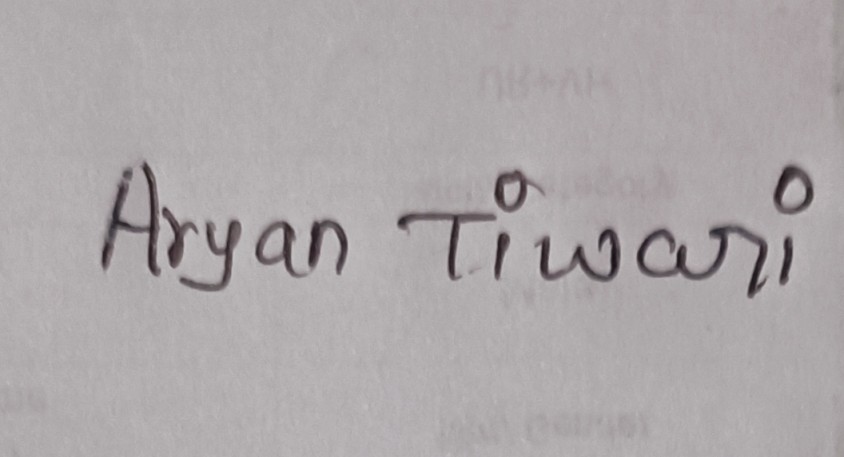 Aryan Tiwari